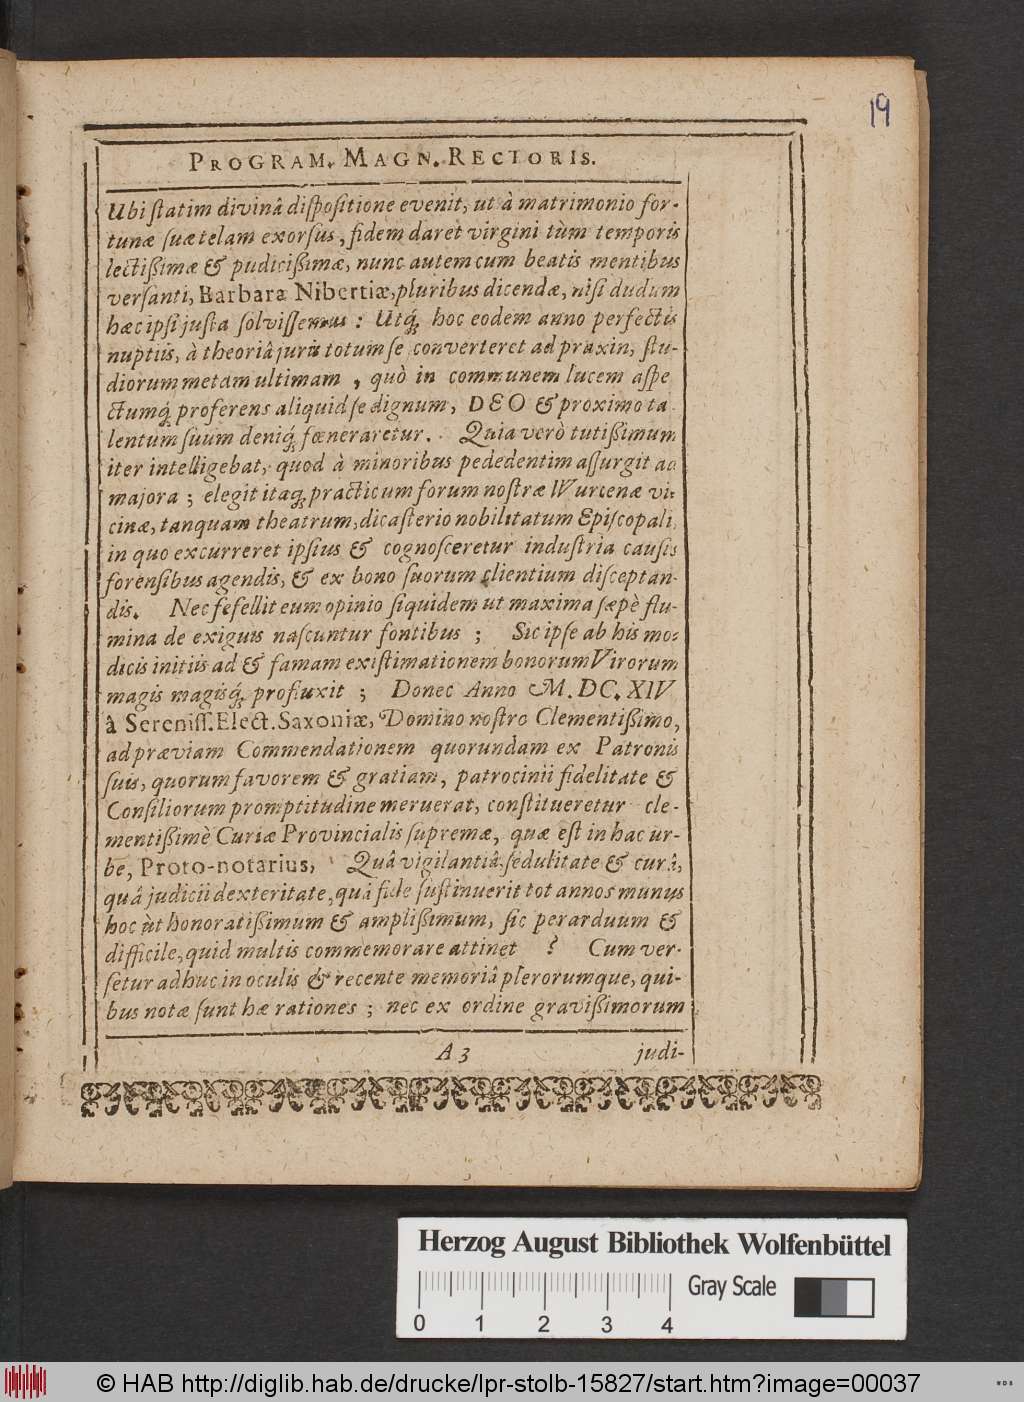 19
PROGRAM. MAGN. RECTORIS.
Ubi ſtatim divinâ diſpoſitione evenit, ut à matrimonio for-
tunæ ſuæ telam exorſus, fidem daret virgini tùm temporis
lectißimæ & pudicißimæ, nunc autem cum beatis mentibus
verſanti, Barbaræ Nibertiæ, pluribus dicendæ, niſi dudum
hæc ipſi juſta ſolviſſemus : Utq́; hoc eodem anno perfectis
nuptiis, à theoriâ juris totum ſe converteret ad praxin, ſtu-
diorum metam ultimam , quò in communem lucem aſpe
ctumq́; proferens aliquid ſe dignum, DEO & proximo ta-
lentum ſuum deniq́; fœneraretur. Quia verò tutißimum
iter intelligebat, quod à minoribus pededentim aſſurgit ad
majora ; elegit itaq; practicum forum noſtræ Wurcenæ vi-
cinæ, tanquam theatrum, dicaſterio nobilitatum Epiſcopali,
in quo excurreret ipſius & cognoſceretur induſtria cauſis
forenſibus agendis, & ex bono ſuorum clientium diſceptan-
dis. Nec fefellit eum opinio ſiquidem ut maxima ſæpè flu-
mina de exiguis naſcuntur fontibus ; Sic ipſe ab his mo-
dicis initiis ad & famam exiſtimationem bonorum Virorum
magis magisq́; profluxit ; Donec Anno M. DC. XIV
à Sereniſſ. Elect. Saxoniæ, Domino noſtro Clementißimo,
ad præviam Commendationem quorundam ex Patronis
ſuis, quorum favorem & gratiam, patrocinii fidelitate &
Conſiliorum promptitudine meruerat, conſtitueretur cle-
mentißimè Curiæ Provincialis ſupremæ, quæ eſt in hac ur-
be, Proto-notarius, Quâ vigilantiâ, ſedulitate & curâ,
quâ judicii dexteritate, quâ fide ſuſtinuerit tot annos munus
hoc ùt honoratißimum & amplißimum, ſic perarduum &
difficile, quid multis commemorare attinet ? Cum ver-
ſetur adhuc in oculis & recente memoriâ plerorumque, qui-
bus notæ ſunt hæ rationes ; nec ex ordine gravißimorum
A 3 judi-
Herzog August Bibliothek Wolfenbüttel
Gray Scale
0 1 2 3 4
© HAB http://diglib.hab.de/drucke/lpr-stolb-15827/start.htm?image=00037
WDB